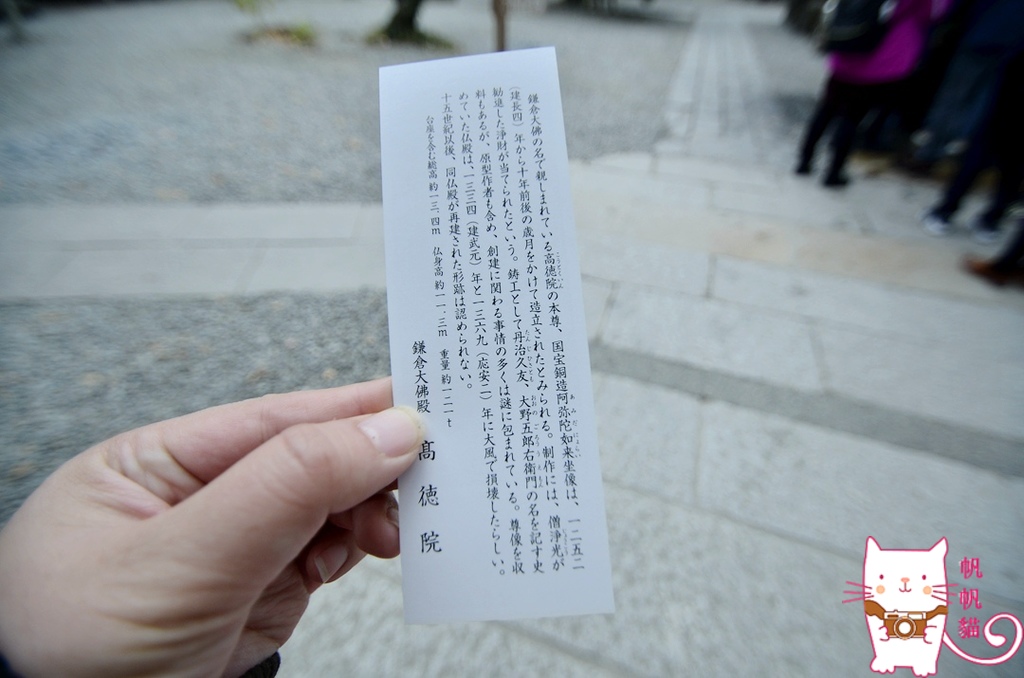 鎌倉大佛の名で親しまれている高徳院の本尊、国宝銅造阿弥陀如来坐像は、一二五二
（建長四）年から十年前後の歳月をかけて造立されたとみられる。制作には、僧浄光が
勧進した浄財が当てられたという。鋳工として丹治久友、大野五郎右衛門の名を記す史
料もあるが、原型作者も含め、創建に関わる事情の多くは謎に包まれている。尊像を収
めていた仏殿は、一三三四（建武元）年と一三六九（応安二）年に大風で損壊したらしい。
十五世紀以後、同仏殿が再建された形跡は認められない。
台座を含む総高 約一三.四m 仏身高 約一一.三m 重量 約一二一t
鎌倉大佛殿 高徳院
帆帆貓